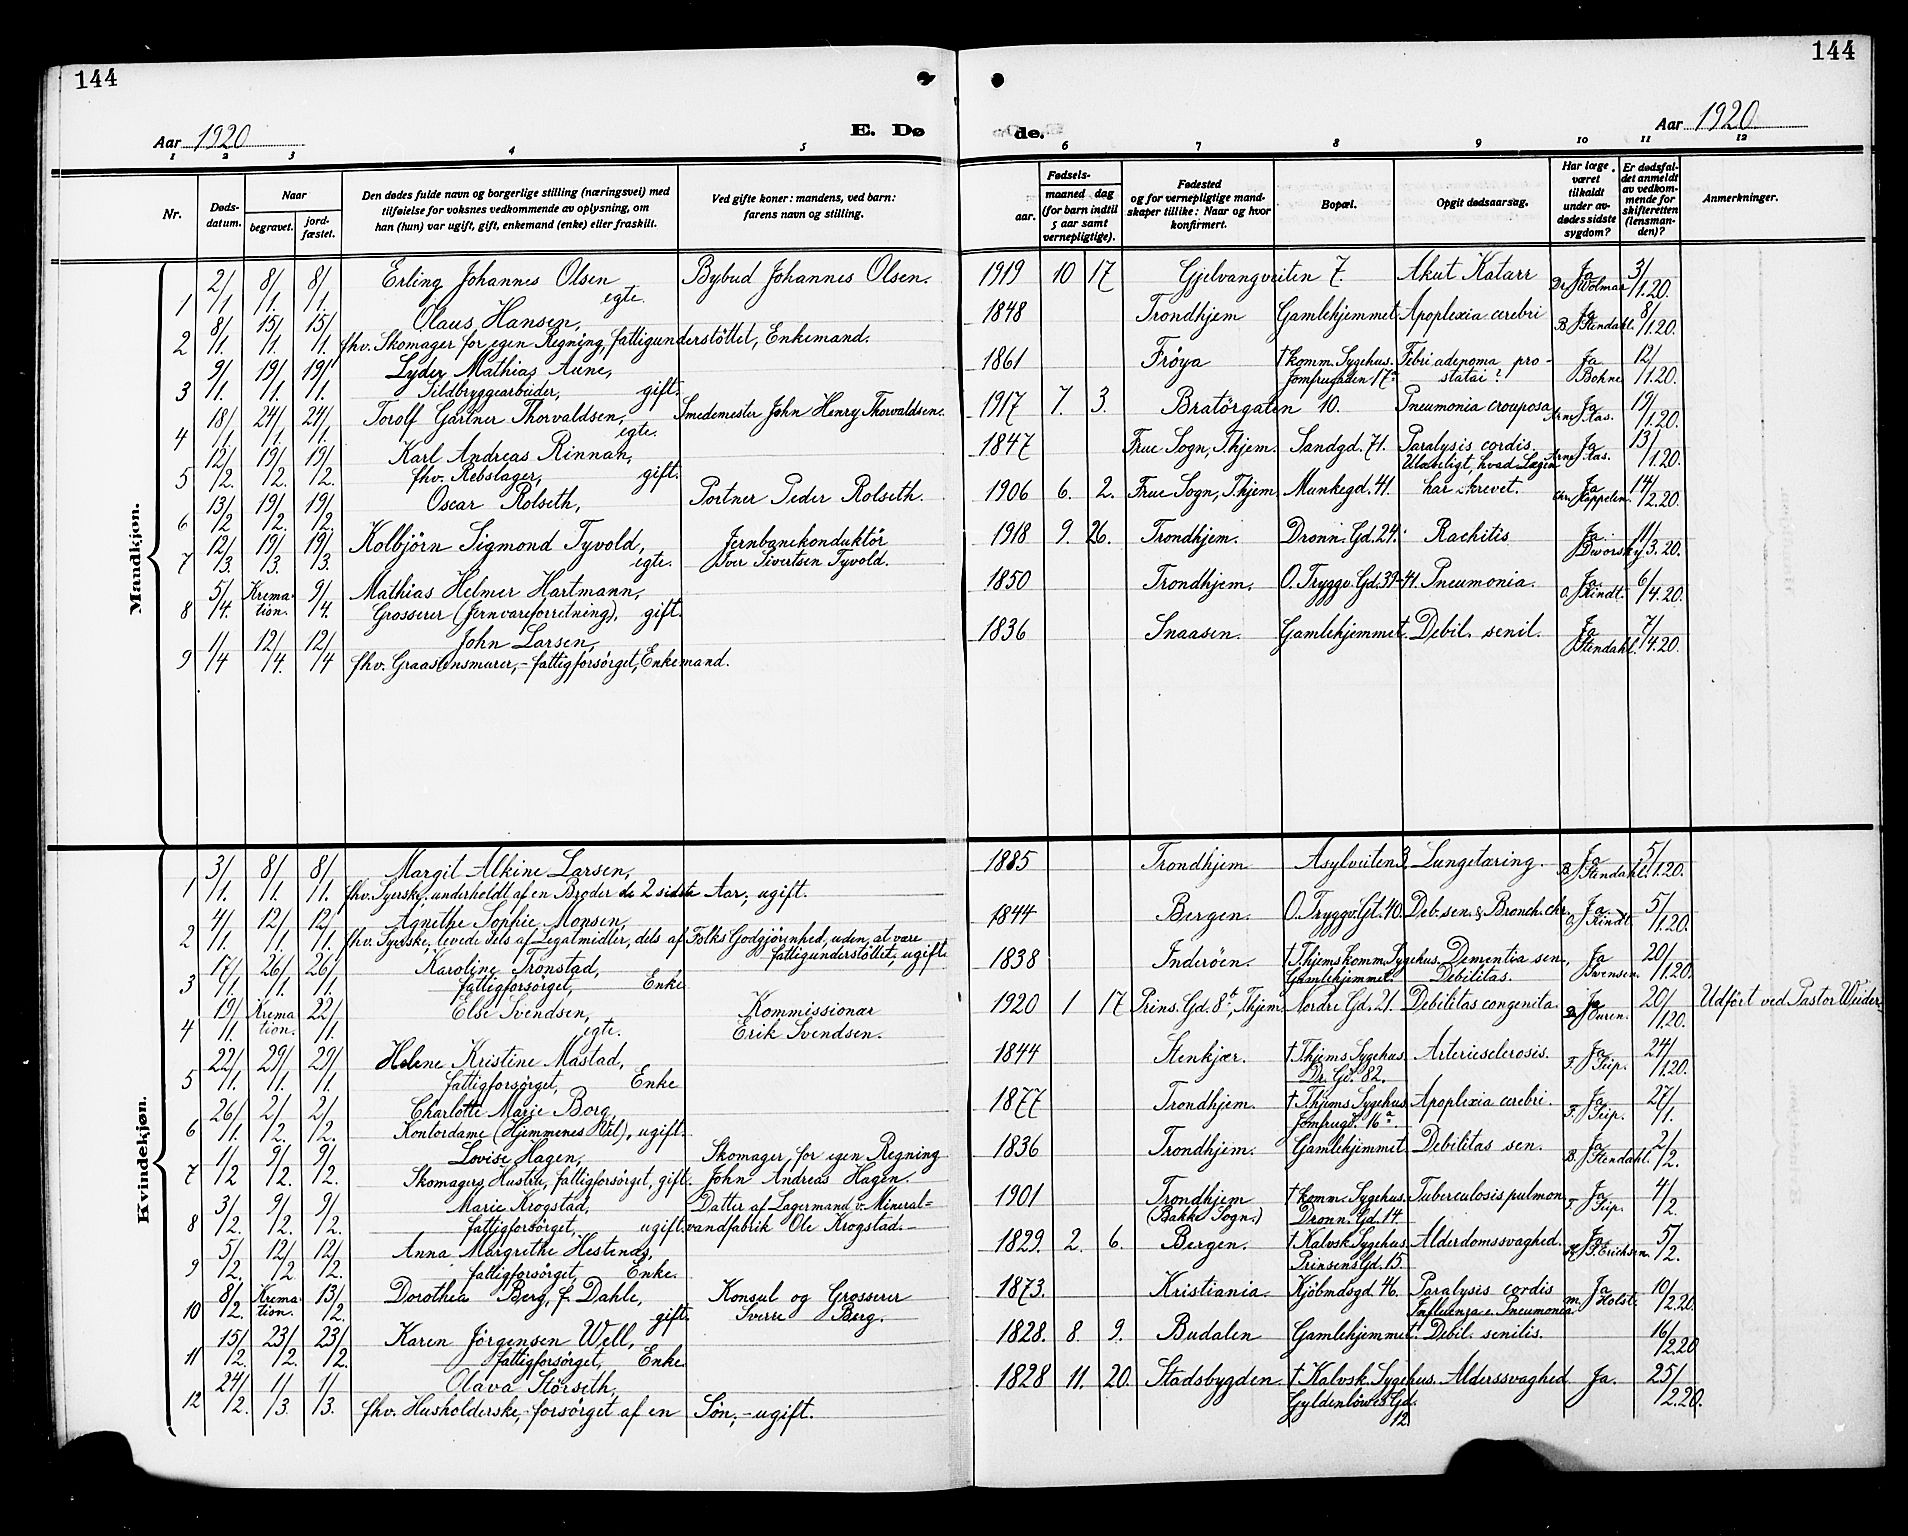 144
144
Aar 1920
E. Dø
de.
Aar 1920
1 2 3 4 5 6 7 8 9 10 11 12
Nr.
Døds-
datum.
Naar
begravet.
jord-
fæstet.
Den dødes fulde navn og borgerlige stilling (næringsvei) med
tilføielse for voksnes vedkommende av oplysning, om
han (hun) var ugift, gift, enkemand (enke) eller fraskilt.
Ved gifte koner: mandens, ved barn:
farens navn og stilling.
Fødsels-
aar.
maaned dag
(for barn indtil
5 aar samt
vernepligtige).
Fødested
og for vernepligtige mand-
skaper tillike: Naar og hvor
konfirmert.
Bopæl.
Opgit dødsaarsag.
Har læge
været
tilkaldt
under av-
dødes sidste
sygdom?
Er dødsfal-
det anmeldt
av vedkom-
mende for
skifteretten
(lensman-
den)?
Anmerkninger.
Mandkjøn.
1 2/1. 8/1. 8/1. Erling Johannes Olsen Bybud Johannes Olsen. 1919 10 17 Gjelvangveiten 7. Akut Katarr Ja 3/1.20.
egte. Dr. Wolmar
2 8/1. 15/1. 15/1. Olaus Hansen, 1848 Trondhjem Gamlehjemmet Apoplexia cerebri Ja 8/1.20.
fhv. Skomager for egen Regning, fattigunderstöttet, Enkemand. B. Stendahl.
3 9/1. 19/1. 19/1. Lyder Mathias Aune, 1861 Fröya † komm. Sygehus. Febri adenoma pro- Ja 12/1.20.
Sildbryggearbeider, gift. Jomfrugaden 17a statai? Bohne
4 18/1. 24/1. 24/1. Torolf Gartner Thorvaldsen, Smedemester John Henry Thorvaldsen. 1917 7. 3. Bratörgaten 10. Pneumonia crouposa Ja 19/1.20.
egte. Arne Aas.
5 12/2. 19/2. 19/2. Karl Andreas Rinnan, 1847 Frue Sogn, Thjem. Sandgd. 71. Paralysis cordis. Ja 13/1.20.
fhv. Rebslager, gift. Utæneligt, hvad Lægen Arne Aas.
6 13/2 19/2. 19/2. Oscar Rolseth, Portner Peder Rolseth. 1906 6. 2. Frue Sogn, T.hjem Munkegd. 41. har skrevet. Ja 14/2.20.
Chr. Kappelen.
7 12/3. 19/3. 19/3. Kolbjörn Sigmond Tyvold, Jernbanekonduktör 1918 9. 26. Trondhjem. Dronn. Gd. 24. Rachitis Ja. 11/3.20.
egte. Iver Sivertsen Tyvold. Dworsky
8 5/4. Krema- 9/4. Mathias Helmer Hartmann, 1850 Trondhjem. O. Tryggv. Gd. 39-41. Pneumonia. Ja. 6/4.20.
tion. Grosserer (Jernvareforretning), gift. O. Kindt.
9 11/4 12/4. 12/4 John Larsen, 1836 Snaasen. Gamlehjemmet. Debil. senil. Ja 7/4.20.
fhv. Graastensmurer, - fattigforsörget, Enkemand. Stendahl.
Kvindekjøn.
1 3/1. 8/1. 8/1. Margit Alkine Larsen, 1885 Trondhjem Asylveiten 3. Lungetæring. Ja 5/1.20.
fhv. Syerske, underholdt af en Broder de 2 sidste Aar, ugift. B. Stendahl.
2 4/1. 12/1. 12/1. Agnethe Sophie Monsen, 1844 Bergen. O. Tryggv. Gt. 40. Deb. sen. & Bronch. chr. Ja. 5/1.20.
fhv. Syerske, levede dels af Legatmidler, dels af Folks Godgjörenhed, uden, at være O. Kindt.
fattigunderstöttet, ugift.
3 17/1. 26/1. 26/1. Karoline Tronstad, 1838 Inderöen. † T.hjems komm. Sygehus. Dementia sen., Ja 20/1.20.
fattigforsörget, Enke Gamlehjemmet. Debilitas. Svensen.
4 19/1. Krema 22/1. Else Svendsen, Kommissionær 1920 1 17 Prins. Gd. 8b, Thjem. Nordre Gd. 21. Debilitas congenita. Ja 20/1.20. Udfört ved Pastor
tion. egte. Erik Svendsen. Øuren.
5 22/1. 29/1. 29/1. Helene Kristine Mastad, 1844 Stenkjær. † Thjems Sygehus. Arteriesclerosis. Ja 24/1.20.
fattigforsörget, Enke Dr. Gd. 82. T. Teip.
6 26/1. 2/2. 2/2. Charlotte Marie Borg, 1877 Trondhjem. † Thjems Sygehus Apoplexia cerebri. Ja 27/1.
Kontordame (Hjemmenes Vel), ugift. Jomfrugd. 16a T. Teip.
7 1/2 9/2. 9/2. Lovise Hagen, Skomager for egen Regning 1836 Trondhjem. Gamlehjemmet. Debilitas sen. Ja 2/2.
Skomagers Hustru, fattigforsörget, gift. John Andreas Hagen. B. Stendahl.
8 3/2. 9/2. 9/2. Marie Krogstad, Datter af Lagermand v. Mineral- 1901 Trondhjem † komm. Sygehus. Tuberculosis pulmon. Ja 4/2.
fattigforsörget, ugift. vandfabrik Ole Krogstad. - (Bakke Sogn.) Dronn. Gd. 14. T. Teip.
9 5/2. 12/2 12/2. Anna Margrethe Hestenæs, 1829. 2. 6. Bergen. † Kalvsk. Sygehus. Alderdomssvaghed. Ja. 5/2.
fattigforsörget, Enke. Prinsens Gd. 15. Erichsen.
10 8/2. Krema- 13/2 Dorothea Berg, f. Dahle, Konsul og Grosserer 1873. Kristiania. Kjöbmdgd 46. Paralysis cordis Ja 10/2.20.
tion. gift. Sverre Berg. Influenza e. Pneumonia. M. Holst.
11 15/2. 23/2. 23/2. Karen Jörgensen Well, 1828. 8. 9. Budalen Gamlehjemmet. Debil. senilis. 16/2.20
fattigforsörget, Enke
12 24/2. 1/3. 1/3. Olava Störseth, 1828 11. 20. Stadsbygden † Kalvsk. Sygehus. Alderssvaghed. Ja. 25/2.20.
fhv. Husholderske, - forsörget af en Sön, - ugift. Gyldenlöves Gd.
12.